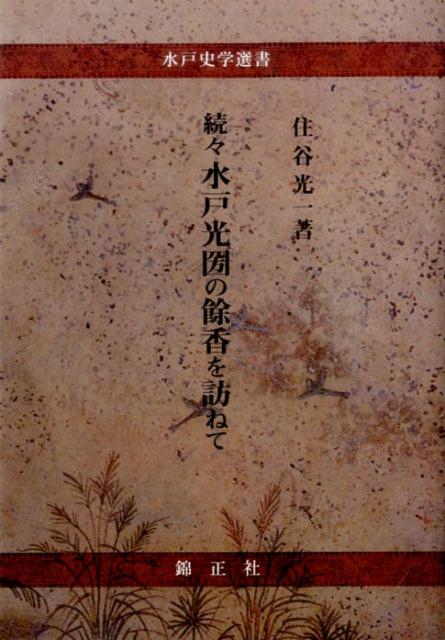 水戸史学選書
住谷光一著
続々水戸光圀の餘香を訪ねて
錦正社